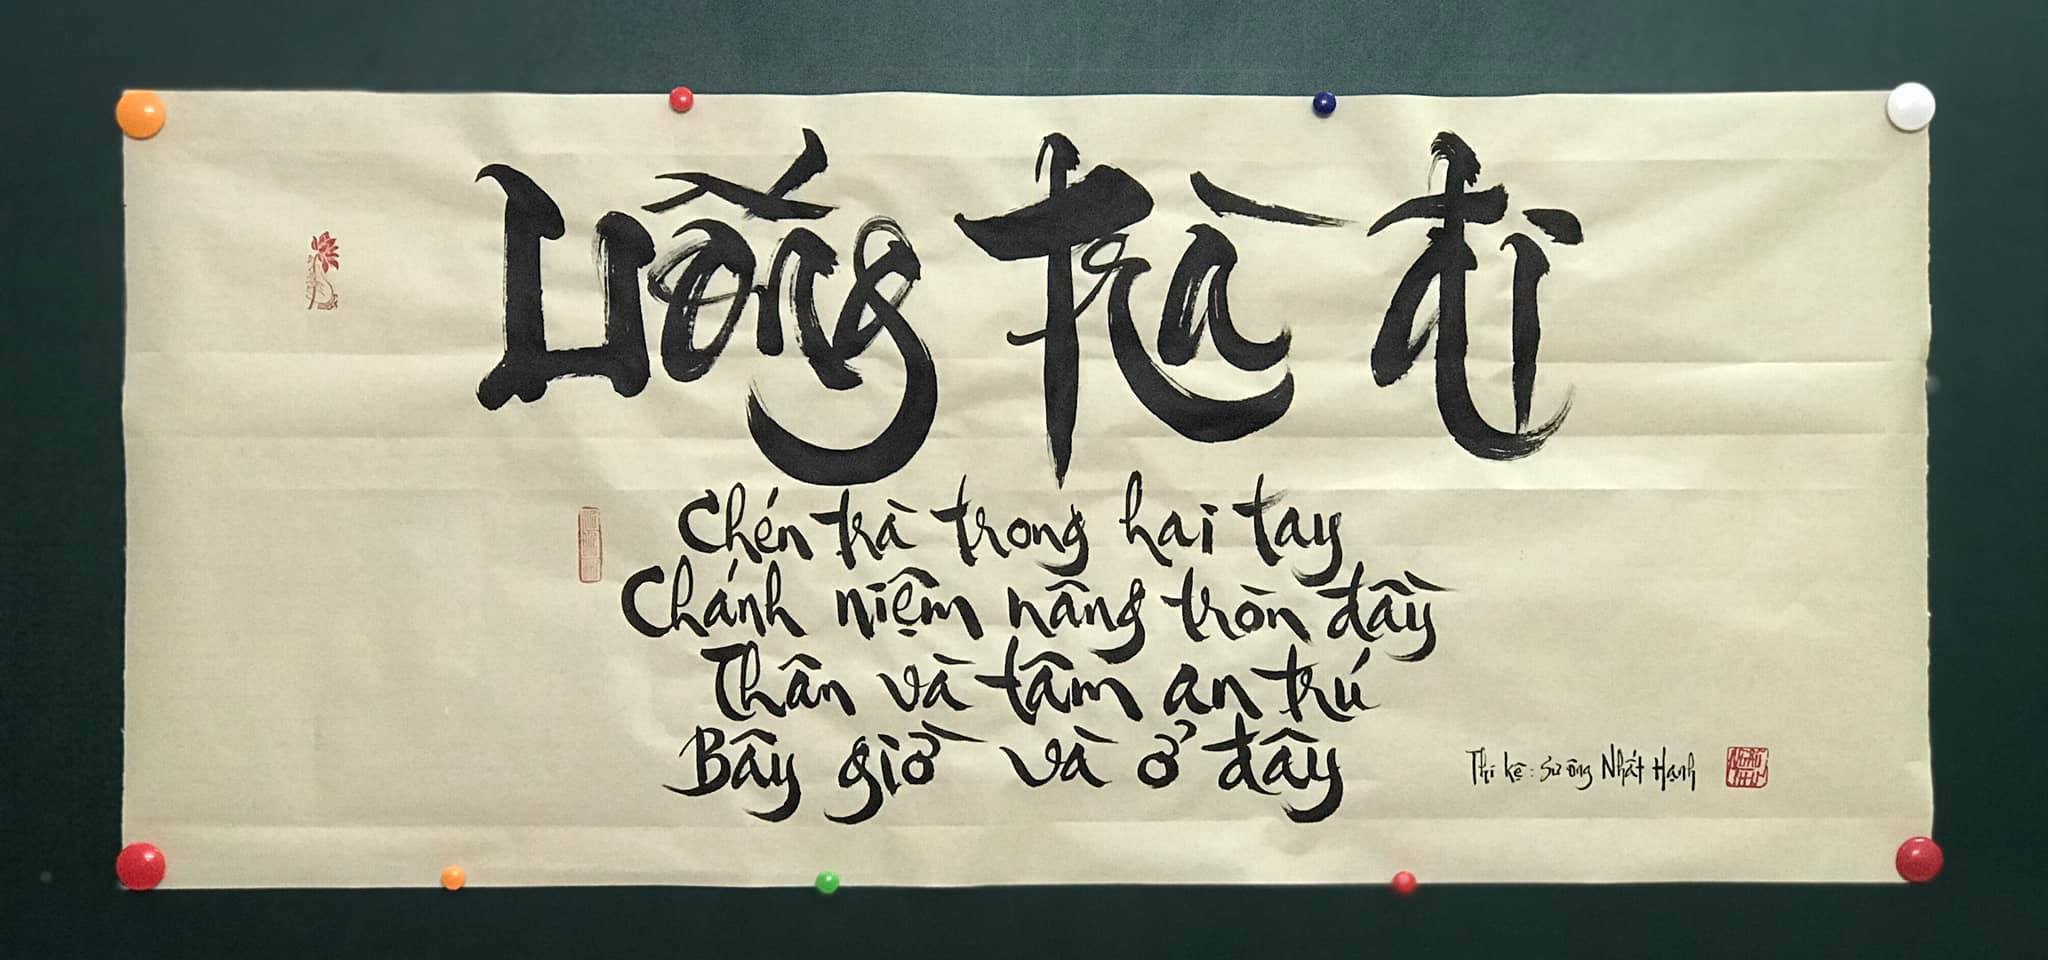 Uống trà đi
Chén trà trong hai tay
Chánh niệm nâng tròn đầy
Thân và tâm an trú
Bây giờ và ở đây
Thi kệ: Sư Ông Nhất Hạnh